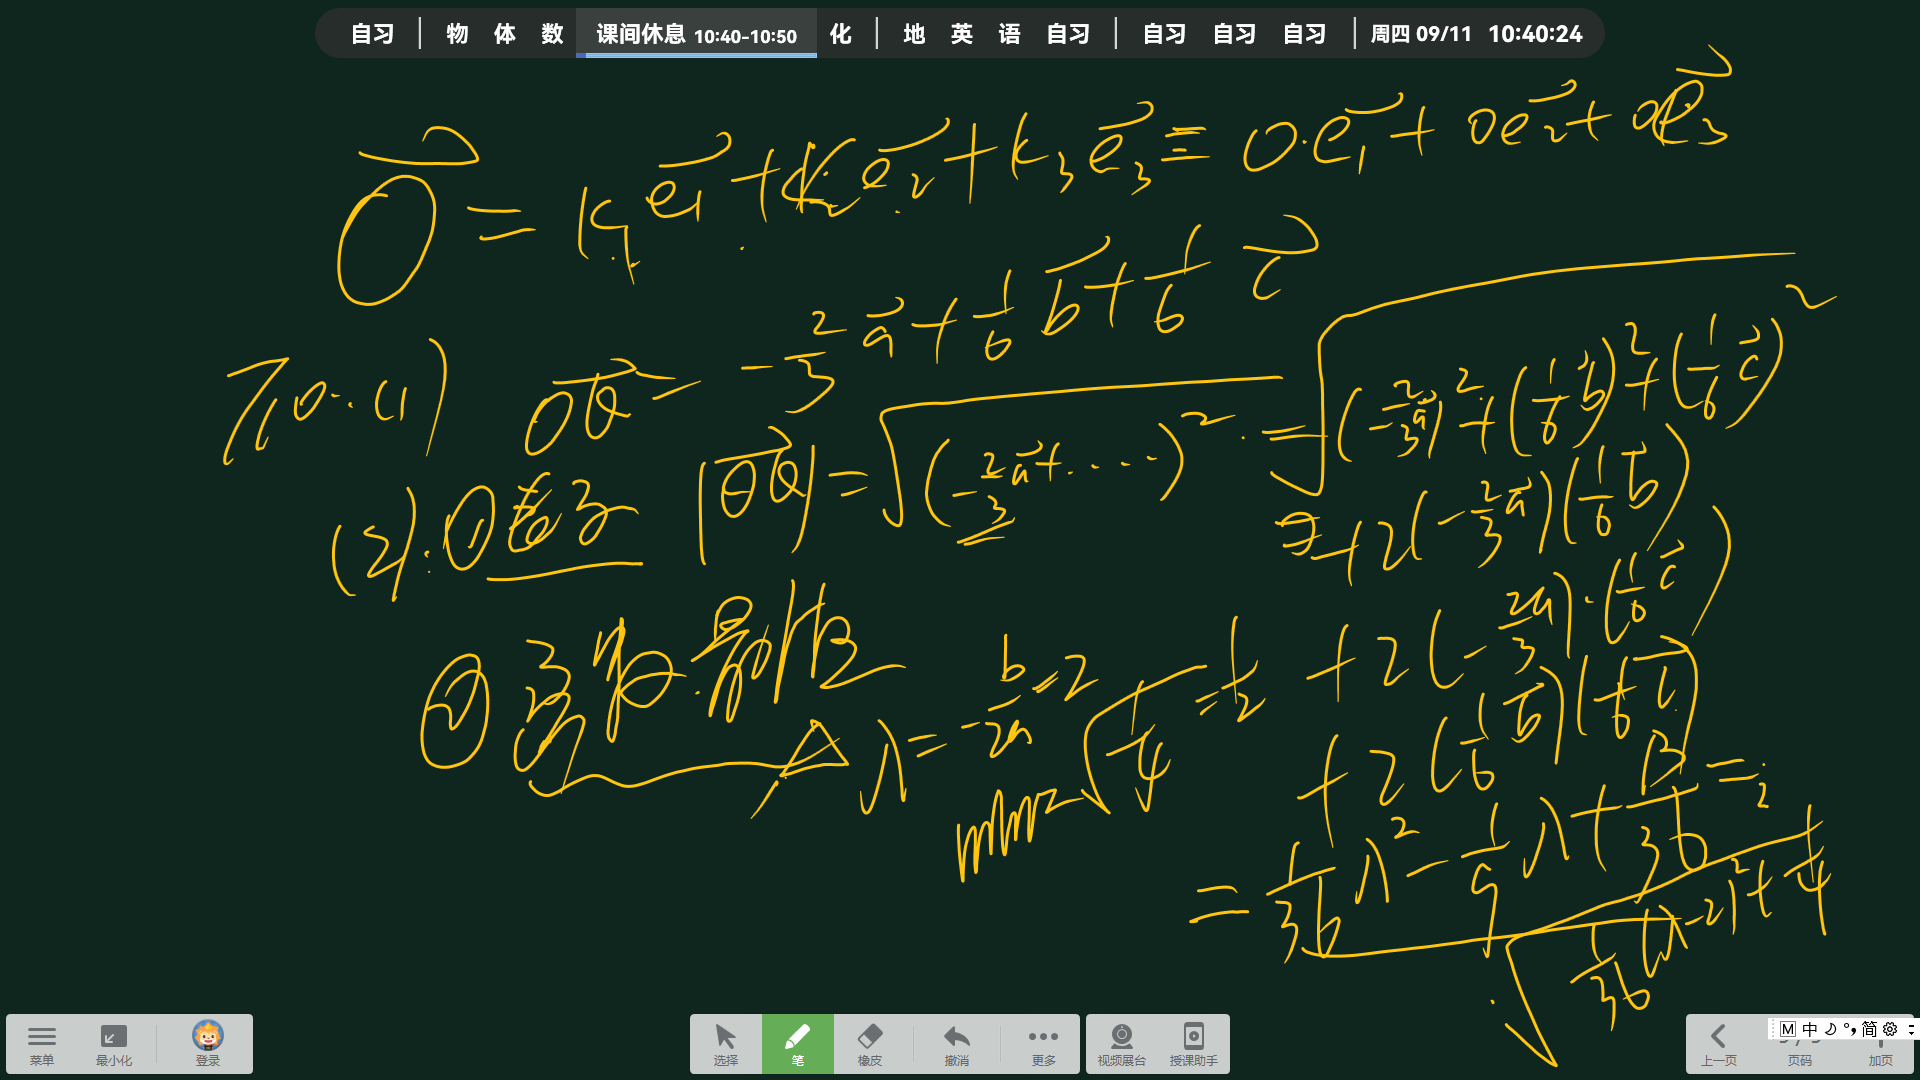 自习 | 物 体 数 课间休息 10:40-10:50 化 | 地 英 语 自习 | 自习 自习 自习 | 周四 09/11 10:40:24
0 = k₁e₁ + k₂e₂ + k₃e₃ = 0·e₁ + 0e₂ + 0e₃
T10.(1) OQ = -2/3 a + 1/6 b + 1/6 c
(2).① |OQ| = √(-2/3 a + ....)² = √(-2/3 a)² + (1/6 b)² + (1/6 c)²
+ 2(-2/3 a)(1/6 b)
+ 2(-2a/3)·(1/6 c)
+ 2(1/6 b)(1/6 c)
② 最值 λ = -b/2a = 2
min = √1/4 = 1/2
= 1/36 λ² - 1/9 λ + 13/36 =
√1/36 (λ-2)² + 1/4
菜单 最小化 登录 选择 笔 橡皮 撤消 更多 视频展台 授课助手 上一页 页码 加页
M 中 简